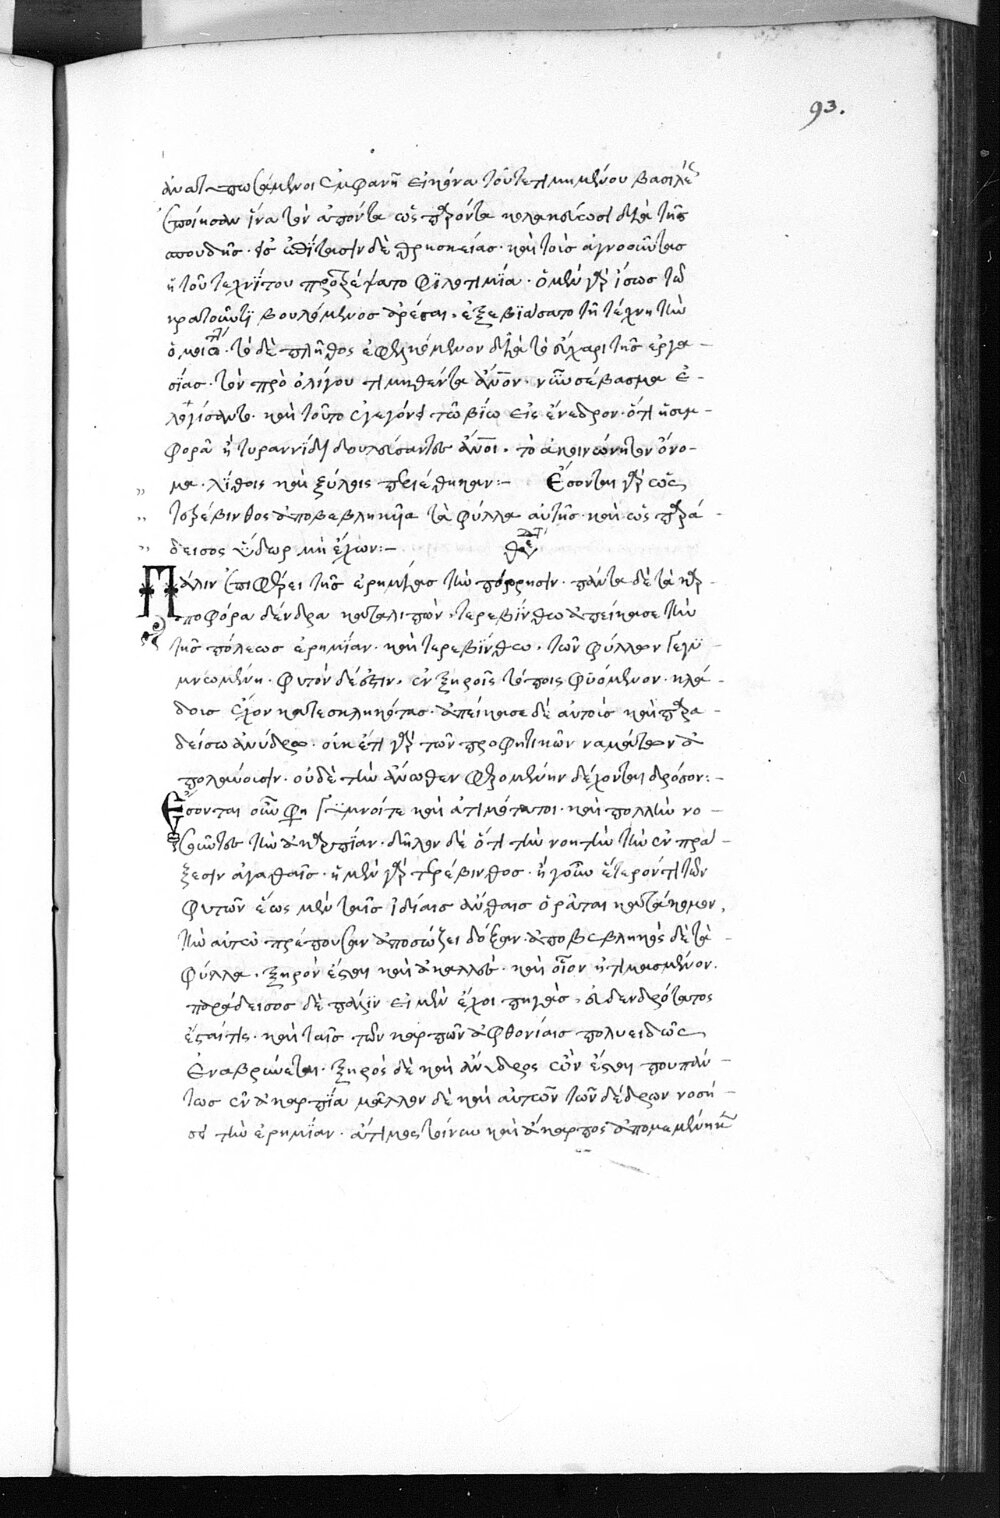 93.
ἀνατυπωσάμενοι ἐμφανῆ εἰκόνα τοῦ τετιμημένου βασιλέως
ἐποίησαν ἵνα τὸν ἀπόντα ὡς παρόντα κολακεύωσι διὰ τῆς
σπουδῆς· εἰς ἐπίτασιν δὲ θρησκείας· καὶ τοὺς ἀγνοοῦντας
ἡ τοῦ τεχνίτου προετρέψατο φιλοτιμία· ὁ μὲν γὰρ ἴσως τῷ
κρατοῦντι βουλόμενος ἀρέσαι· ἐξεβιάσατο τῇ τέχνῃ τὴν
ὁμοιότητα· τὸ δὲ πλῆθος ἐφελκόμενον διὰ τὸ εὔχαρι τῆς ἐργα-
σίας· τὸν πρὸ ὀλίγου τιμηθέντα ἄνον· νῦν σέβασμα ἐ-
λογίσαντο· καὶ τοῦτο ἐγεγόνει τῷ βίῳ εἰς ἔνεδρον· ὅτι ἢ συμ-
φορᾷ ἢ τυραννίδι δουλεύσαντες ἄνοι· τὸ ἀκοινώνητον ὄνο-
μα· λίθοις καὶ ξύλοις περιέθηκαν:- Ἔσονται γὰρ ὡς
τερέβινθος ἀποβεβληκυῖα τὰ φύλλα αὐτῆς· καὶ ὡς παρά-
δεισος ὕδωρ μὴ ἔχων:-
Πάλιν ἐπιφέρει τῆς ἐρημίας τὴν πόρρησιν· πάντα δὲ τὰ καρ-
ποφόρα δένδρα καταλιπὼν· τερεβίνθῳ ἀπείκασε τὴν
τῆς πόλεως ἐρημίαν· καὶ τερεβίνθῳ· τῶν φύλλων γεγυ-
μνωμένῃ· φυτὸν δέ ἐστιν· ἐν ξηροῖς τόποις φυόμενον· κλά-
δοις ἔχον κατεσκληκότας· ἀπείκασε δὲ αὐτοὺς καὶ παρα-
δείσῳ ἀνύδρῳ· οὐκ ἔτι γὰρ τῶν προφητικῶν ναμάτων ἀ
πολαύουσιν· οὐδὲ τὴν ἄνωθεν φερομένην δέχονται δρόσον:-
Ἔσονται οὖν φη γυμνοί τε καὶ ἀτιμότατοι· καὶ πολλὴν νο-
σοῦντες τὴν ἀκαρπίαν· δῆλον δὲ ὅτι τὴν νοητὴν τὴν ἐν πρά-
ξεσιν ἀγαθαῖς· ἡ μὲν γὰρ τερέβινθος· ἤγουν ἕτερόν τι τῶν
φυτῶν ἕως μὲν ταῖς ἰδίαις ἄνθαις ὁρᾶται κατάκομον,
τὴν αὐτῷ πρέπουσαν ἀποσώζει δόξαν· ἀποβεβληκὸς δὲ τὰ
φύλλα· ξηρὸν ἔσται καὶ ἀκαλλὲς· καὶ οἷον ἠτιμασμένον.
παράδεισος δὲ πάλιν εἰ μὲν ἔχοι πηγὰς· εὐδενδρότατος
ἔσται τις· καὶ ταῖς τῶν καρπῶν ἀφθονίαις πολυειδῶς
ἐναβρύνεται· ξηρὸς δὲ καὶ ἄνυδρος ὢν ἔσται που πάν-
τως ἐν ἀκαρπίᾳ μᾶλλον δὲ καὶ αὐτῶν τῶν δένδρων νοσή-
σει τὴν ἐρημίαν· ἄτιμος τοίνυν καὶ ἄκαρπος